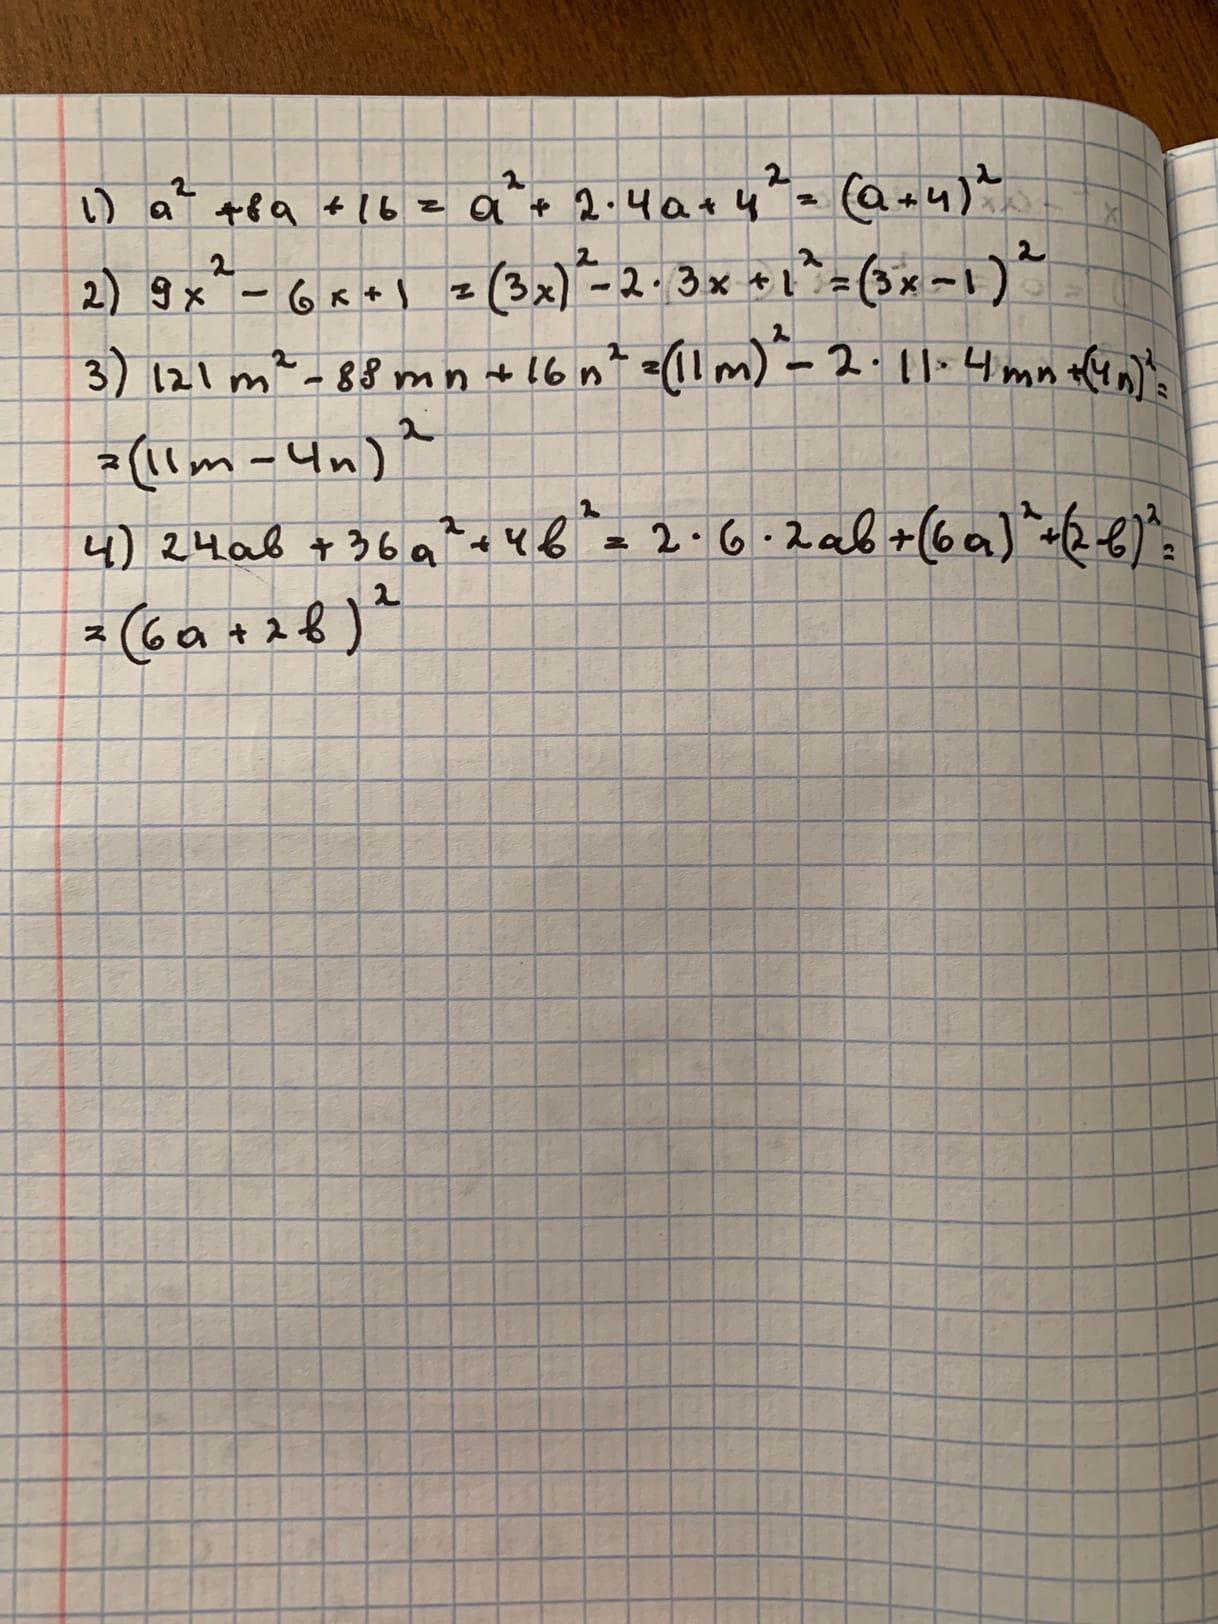 1) a² + 8a + 16 = a² + 2·4a + 4² = (a+4)²
2) 9x² - 6x + 1 = (3x)² - 2·3x + 1² = (3x-1)²
3) 121m² - 88mn + 16n² = (11m)² - 2·11·4mn + (4n)² =
= (11m - 4n)²
4) 24ab + 36a² + 4b² = 2·6·2ab + (6a)² + (2b)² =
= (6a + 2b)²